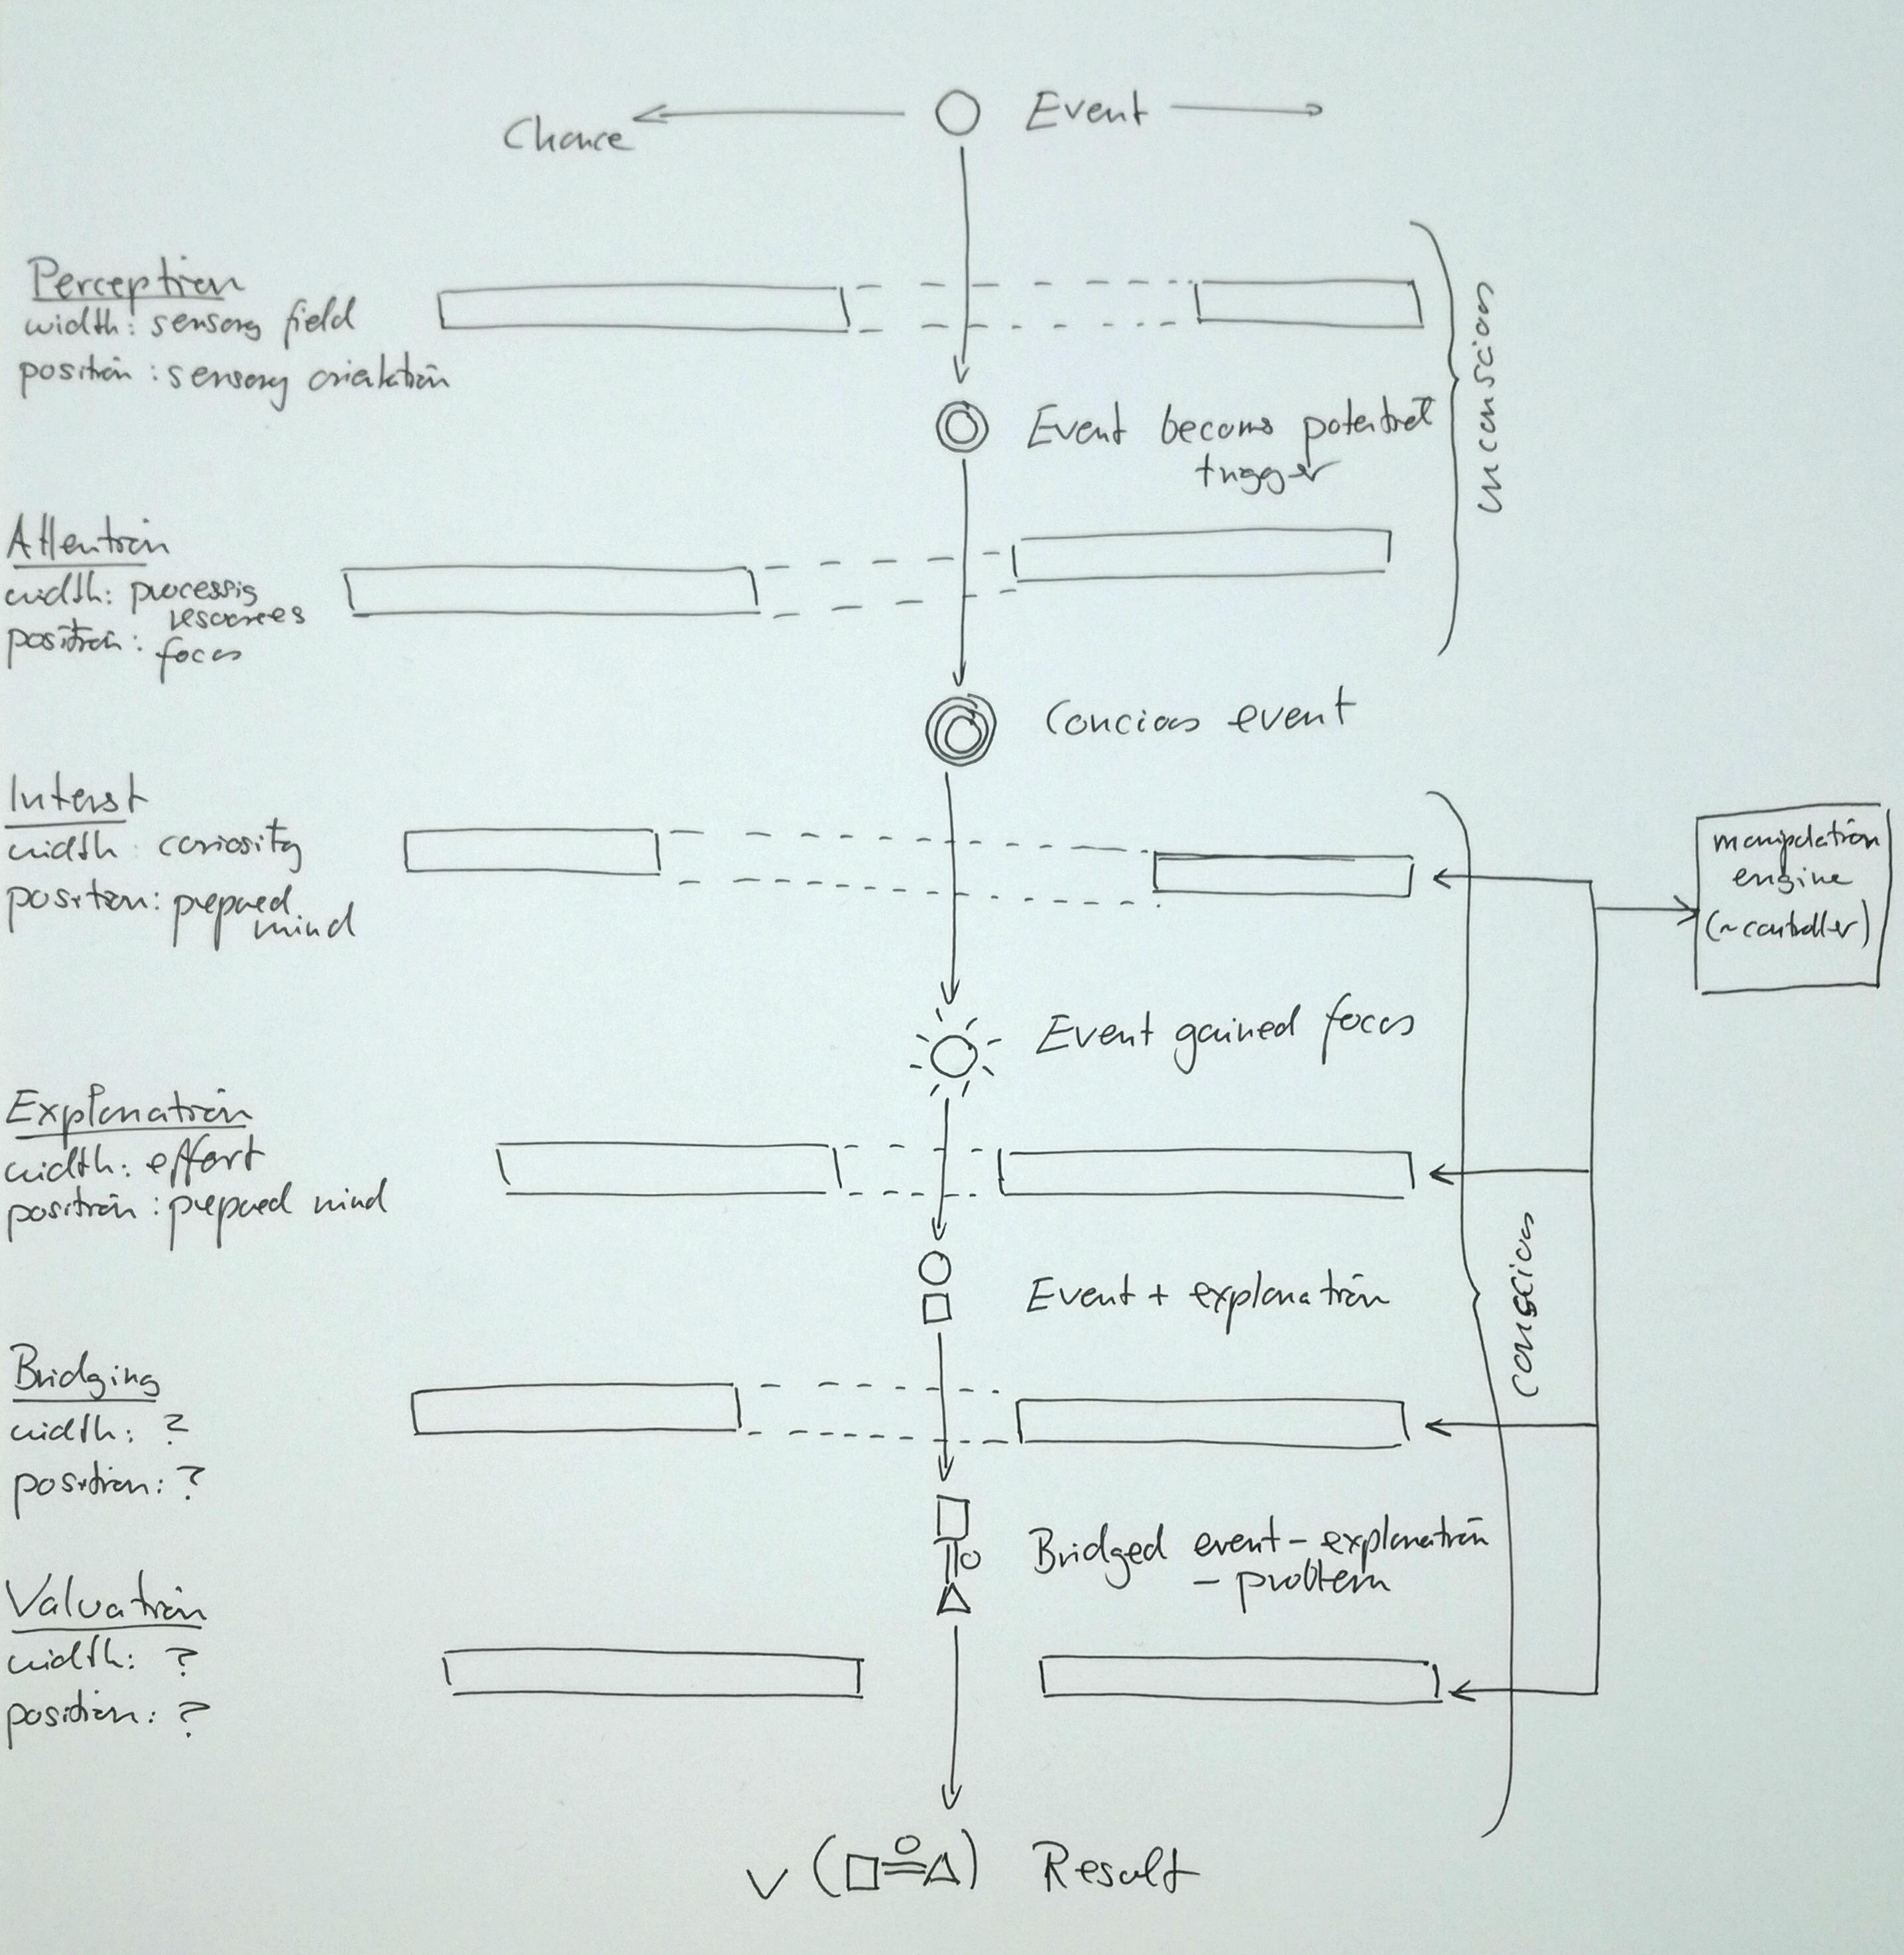 Chance
Event
Perception
width: sensory field
position: sensory orientation
unconscious
Event becoms potential
trigger
Attention
width: processig
resources
position: focus
Concious event
Interst
width: coriosity
position: prepared
mind
manipulation
engine
(~controller)
Event gained focus
Explanation
width: effort
position: prepared mind
conscious
Event + explanation
Bridging
width: ?
position: ?
Bridged event - explanation
- problem
Valuation
width: ?
position: ?
V (□=△) Result